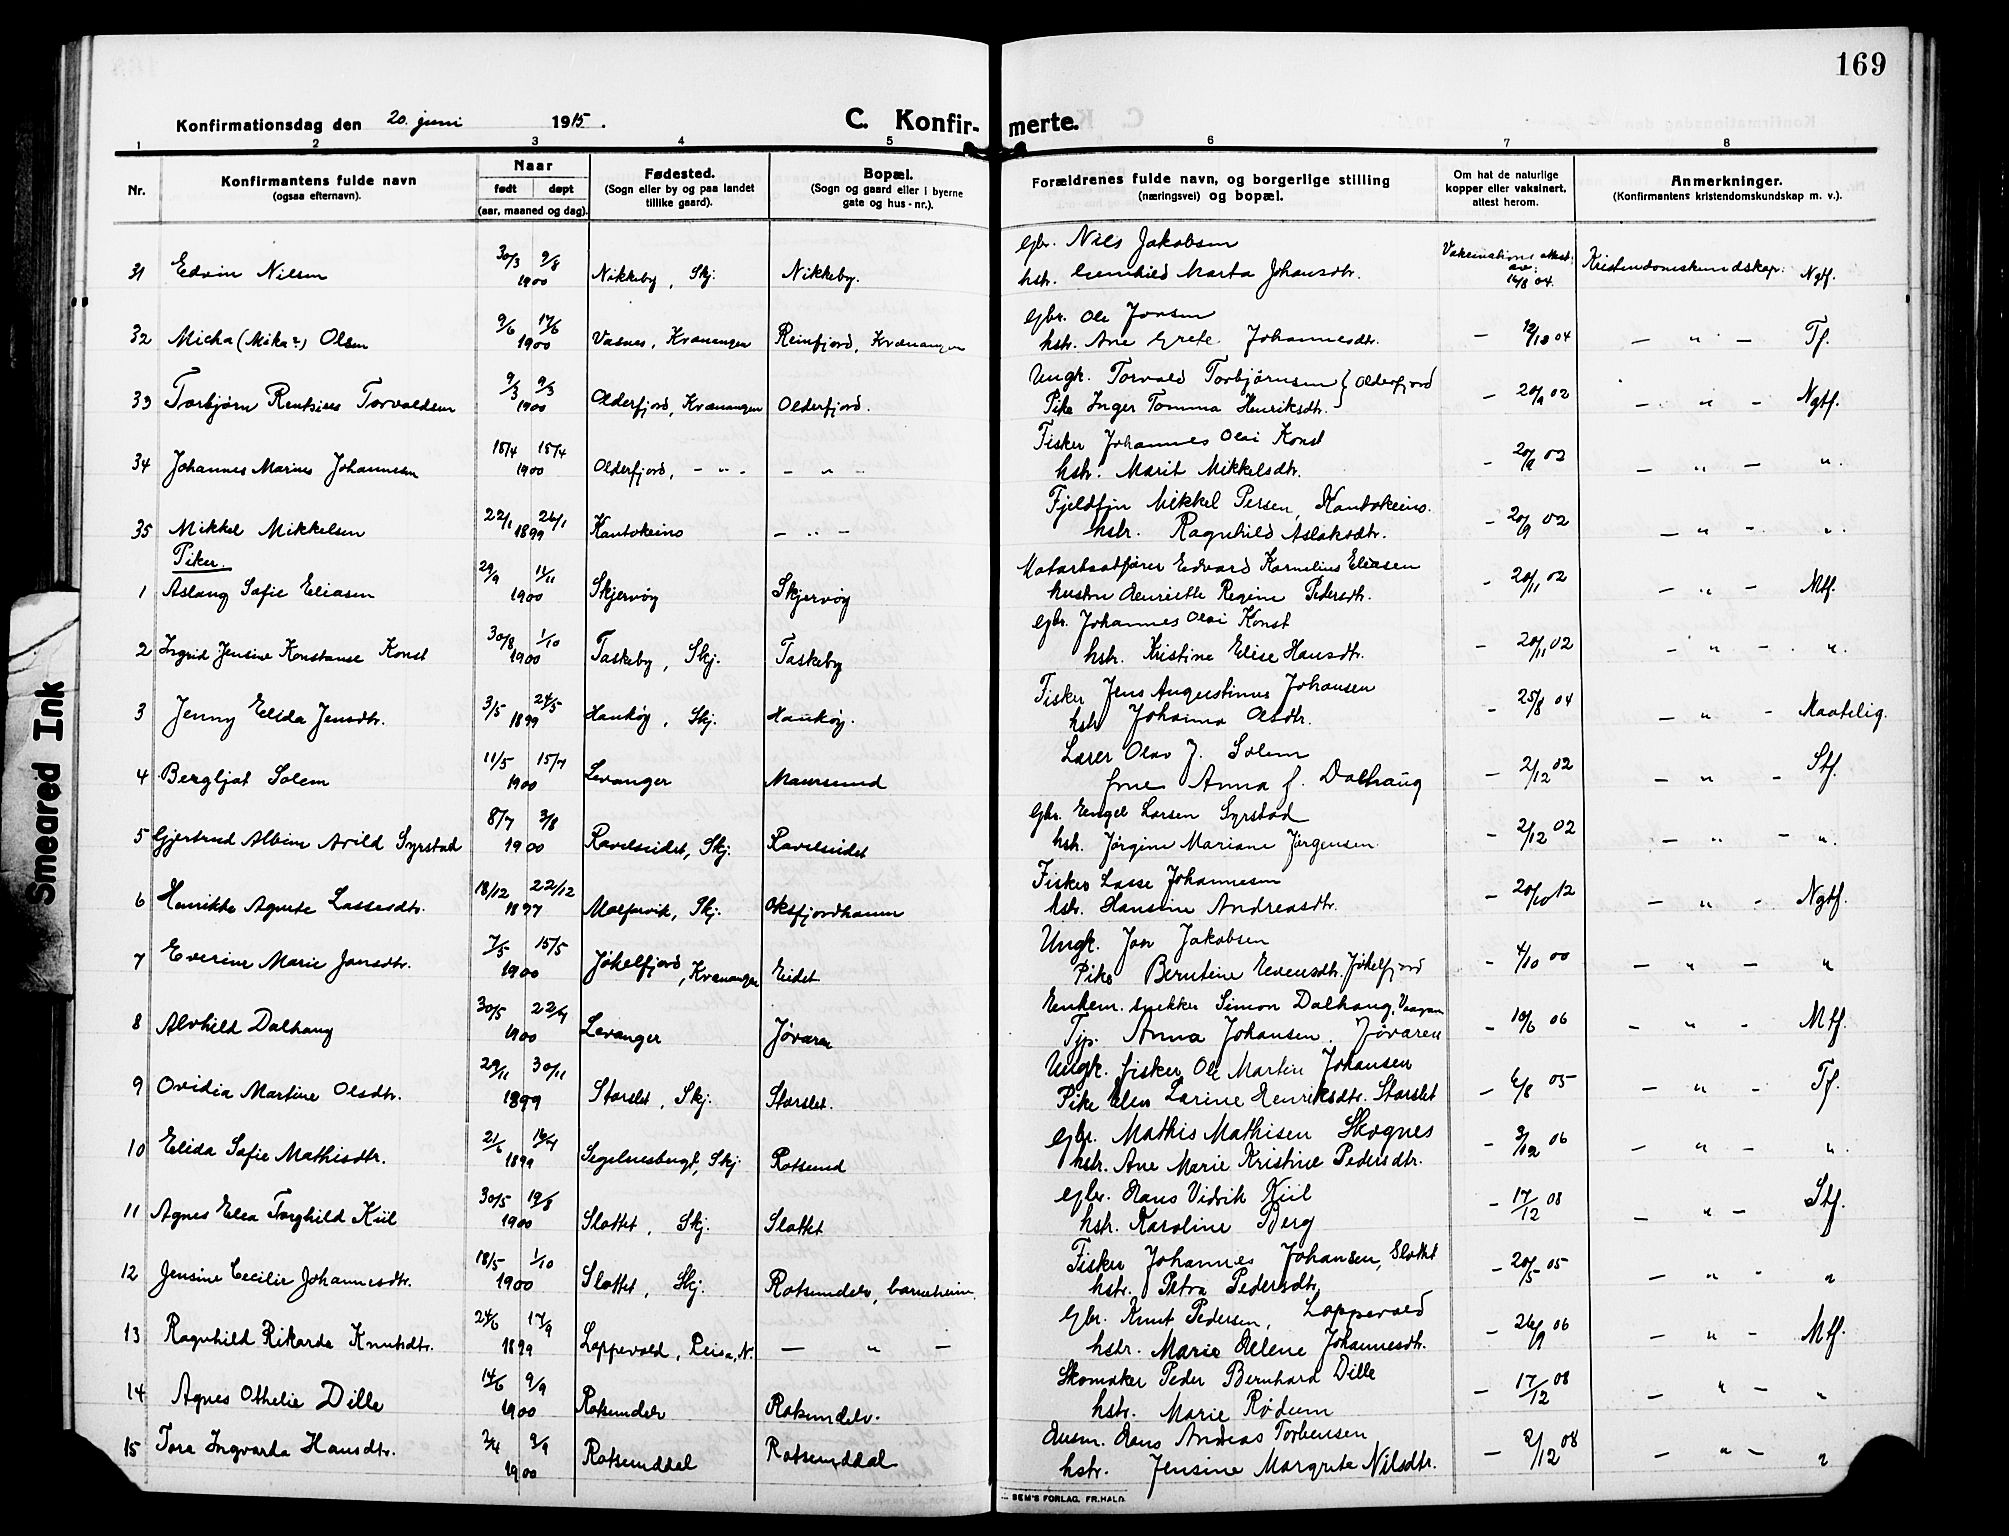 169
Konfirmationsdag den 20. juni 1915.
C. Konfir-merte.
1 2 3 4 5 6 7 8
Nr.
Konfirmantens fulde navn
(ogsaa efternavn).
Naar
født døpt
(aar, maaned og dag).
Fødested.
(Sogn eller by og paa landet
tillike gaard).
Bopæl.
(Sogn og gaard eller i byerne
gate og hus-nr.).
Forældrenes fulde navn, og borgerlige stilling
(næringsvei) og bopæl.
Om hat de naturlige
kopper eller vaksinert,
attest herom.
Anmerkninger.
(Konfirmantens kristendomskundskap m. v.).
gbr. Nils Jakobsen
31 Edvin Nilsen 30/3 9/8 1900 Nikkeby, Skj. Nikkeby. hstr. Gunhild Marta Johansdtr. Vakcinations attest av: 16/8 04. Kristendomskundskap: Ngtf.
gbr. Ole Jonsen
32 Micha (Mika?) Olsen 9/6 17/6 1900 Vasnes, Kvænangen Reinfjord, Kvænangen hstr. Ane Grete Johannesdtr. - 12/10 04 - " - Tf.
Ungk. Torvald Torbjørnsen } Olderfjord
33 Torbjørn Rentsius Torvaldsen 9/3 9/3 1900 Olderfjord, Kvænangen Olderfjord. Pike Inger Tomma Henriksdtr. - 20/9 02 - " - Ngtf.
Fisker Johannes Olai Konst
34 Johannes Marius Johannesen 15/4 15/4 1900 Olderfjord, - " - - " - hstr. Marit Mikkelsdtr. - 20/9 02 - " - ".
Fjeldfin Mikkel Persen, Kautokeino.
35 Mikkel Mikkelsen 22/1 26/1 1899 Kautokeino - " - hstr. Ragnhild Aslaksdtr. - 20/9 02 - " - ".
Piker
Motorbaatfører Edvard Kornelius Eliasen
1 Aslaug Sofie Eliasen 29/9 11/11 1900 Skjervøy Skjervøy hustru Henriette Regine Pedersdtr. - 20/11 02 - " - Mtf.
gbr. Johannes Olai Konst
2 Ingrid Jensine Konstanse Konst 30/8 1/10 1900 Taskeby, Skj. Taskeby hstr. Kristine Elise Hansdtr. - 20/11 02 - " - ".
Fisker Jens Augustinus Johansen
3 Jenny Elida Jensdtr. 3/5 24/5 1899 Haukøy, Skj. Haukøy. hstr Johanna Olsdtr. - 25/8 04 - " - Maatelig.
Lærer Olav J. Solem
4 Bergljot Solem 11/5 15/7 1900 Levanger Maursund frue Anna f. Dalhaug - 2/12 02 - " - Stf.
gbr. Engel Larsen Syrstad
5 Gjertrud Albine Arild Syrstad 8/7 3/8 1900 Ravelseidet, Skj. Ravelseidet hstr. Jørgine Mariane Jørgensen - 2/12 02 - " - ".
Fisker Lasse Johannesen
6 Henrikke Agnete Lassesdtr. 18/12 22/12 1897 Molfurvik, Skj. Oksfjordhamn hstr. Hansine Andreasdtr. - 20/10 12 - " - Ngtf.
Ungk. Jon Jakobsen
7 Everine Marie Jonsdtr. 7/5 15/5 1900 Jøkelfjord, Kvænangen Eidet Pike Berntine Evensdtr. Jøkelfjord - 4/10 00 - " - "
Enkem. snekker Simon Dalhaug, Vaagan
8 Alvhild Dalhaug 30/5 22/7 1900 Levanger Jøvaren Tjp. Anna Johansen. Jøvaren - 10/6 06 - " - Mtf.
Ungk. fisker Ole Martin Johansen
9 Ovidia Martine Olsdtr. 29/11 30/11 1899 Storslet, Skj. Storslet. Pike Elen Larine Henriksdtr. Storslet - 6/8 05 - " - Tf.
gbr. Mathis Mathisen Skognes
10 Elida Sofie Mathisdtr. 21/6 16/7 1899 Segelnesbugt, Skj Rotsund hstr. Ane Marie Kristine Pedersdtr. - 3/12 06 - " - ".
gbr. Hans Vidrik Kiil
11 Agnes Elea Torghild Kiil 30/5 19/8 1900 Slottet, Skj. Slottet hstr. Karoline Berg - 17/12 08 - " - Stf.
Fisker Johannes Johansen, Slottet
12 Jensine Cecilie Johannesdtr. 18/5 1/10 1900 Slottet, Skj. Rotsundelv, barneheim. hstr. Petra Pedersdtr - 20/5 05 - " - "
Gbr. Knut Pedersen, Loppevold
13 Ragnhild Rikarda Knutsdtr. 24/6 17/9 1899 Loppevold, Reisa, N. - " - hstr. Marie Helene Johannesdtr. - 26/9 06 - " - Mtf.
Skomaker Peder Bernhard Dille
14 Agnes Othelie Dille 14/6 9/9 1900 Rotsundelv Rotsundelv. hstr. Marie Rødum - 17/12 08 - " - "
Husm. Hans Andreas Torbensen
15 Tora Ingvarda Hansdtr. 2/4 9/9 1900 Rotsunddal Rotsunddal. hstr. Jensine Margrete Nilsdtr. - 2/12 08 - " - "
SEM'S FORLAG, FR.HALD.
Smeared Ink